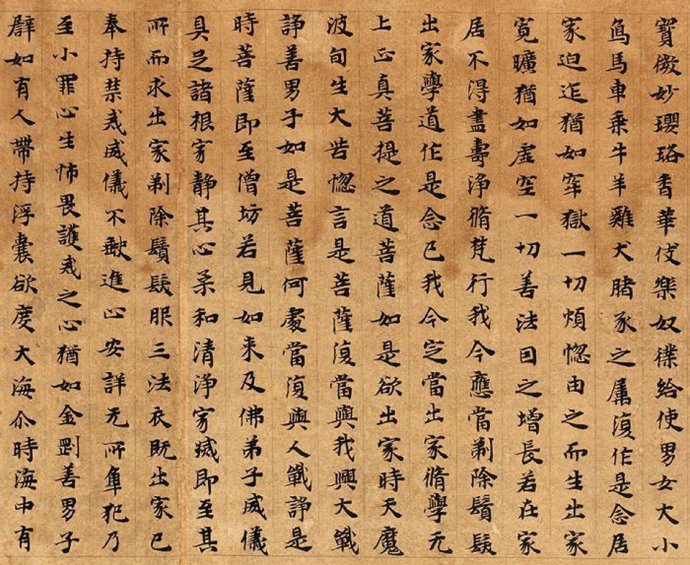 寳㣲妙瓔珞香華伎樂奴僕給使男女大小
爲馬車乗牛羊雞犬猪豕之屬復作是念居
家迫迮猶如牢獄一切煩惚由之而生出家
寬曠猶如虚空一切善法因之增長若在家
居不得盡壽淨脩梵行我今應當剃除鬚髮
出家學道作是念已我今定當出家脩學无
上正真菩提之道菩薩如是欲出家時天魔
波旬生大苦惚言是菩薩復當與我興大戰
諍善男子如是菩薩何處當復與人戰諍是
時菩薩即至僧坊若見如来及佛弟子威儀
具足諸根㝡静其心柔和清淨㝡滅即至其
所而求出家剃除鬚髮服三法衣既出家已
奉持禁戒威儀不缺進止安詳无所觸犯乃
至小罪心生怖畏護戒之心猶如金剛善男子
辟如有人帶持浮囊欲度大海尒時海中有